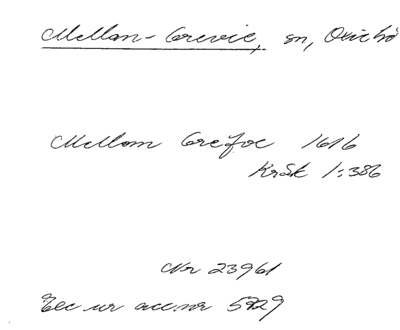 Mellan-Grevie, sn, Oxie hd
Mellom Grefwe 1616
KrSk 1:386
Nr 23961
Exc ur acc.nr 5929